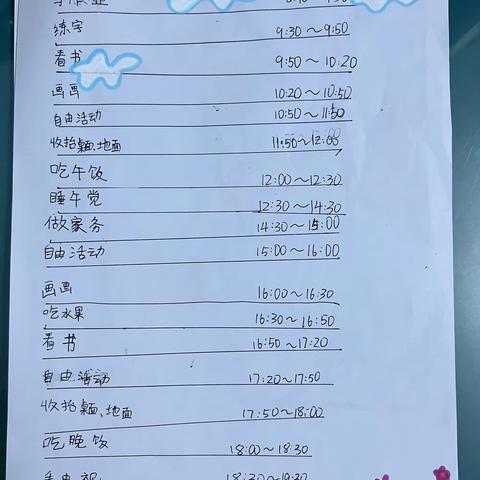 练字 9:30～9:50
看书 9:50～10:20
画画 10:20～10:50
自由活动 10:50～11:50
收拾桌、地面 11:50～12:00
吃午饭 12:00～12:30
睡午觉 12:30～14:30
做家务 14:30～15:00
自由活动 15:00～16:00
画画 16:00～16:30
吃水果 16:30～16:50
看书 16:50～17:20
自由活动 17:20～17:50
收拾桌、地面 17:50～18:00
吃晚饭 18:00～18:30
看电视 18:30～19:30